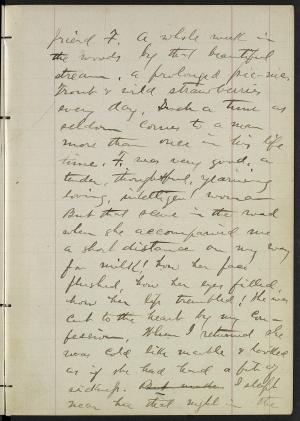 friend F. A whole week in
the woods by that beautiful
stream, a prolonged pic-nic.
Trout & wild strawberries
every day. Such a time as
seldom comes to a man
more than once in his life
time. F. was very good, a
tender, thoughtful, yearning
loving, intelligent woman
But that scene in the road
when she accompanied me
a short distance on my way
for milk! how her face
flushed, how her eyes filled,
how her lips trembled! She was
cut to the heart by my con-
fession. When I returned she
was cold like marble & looked
as if she had had a fit of
sickness. But made I slept
near her that night in the